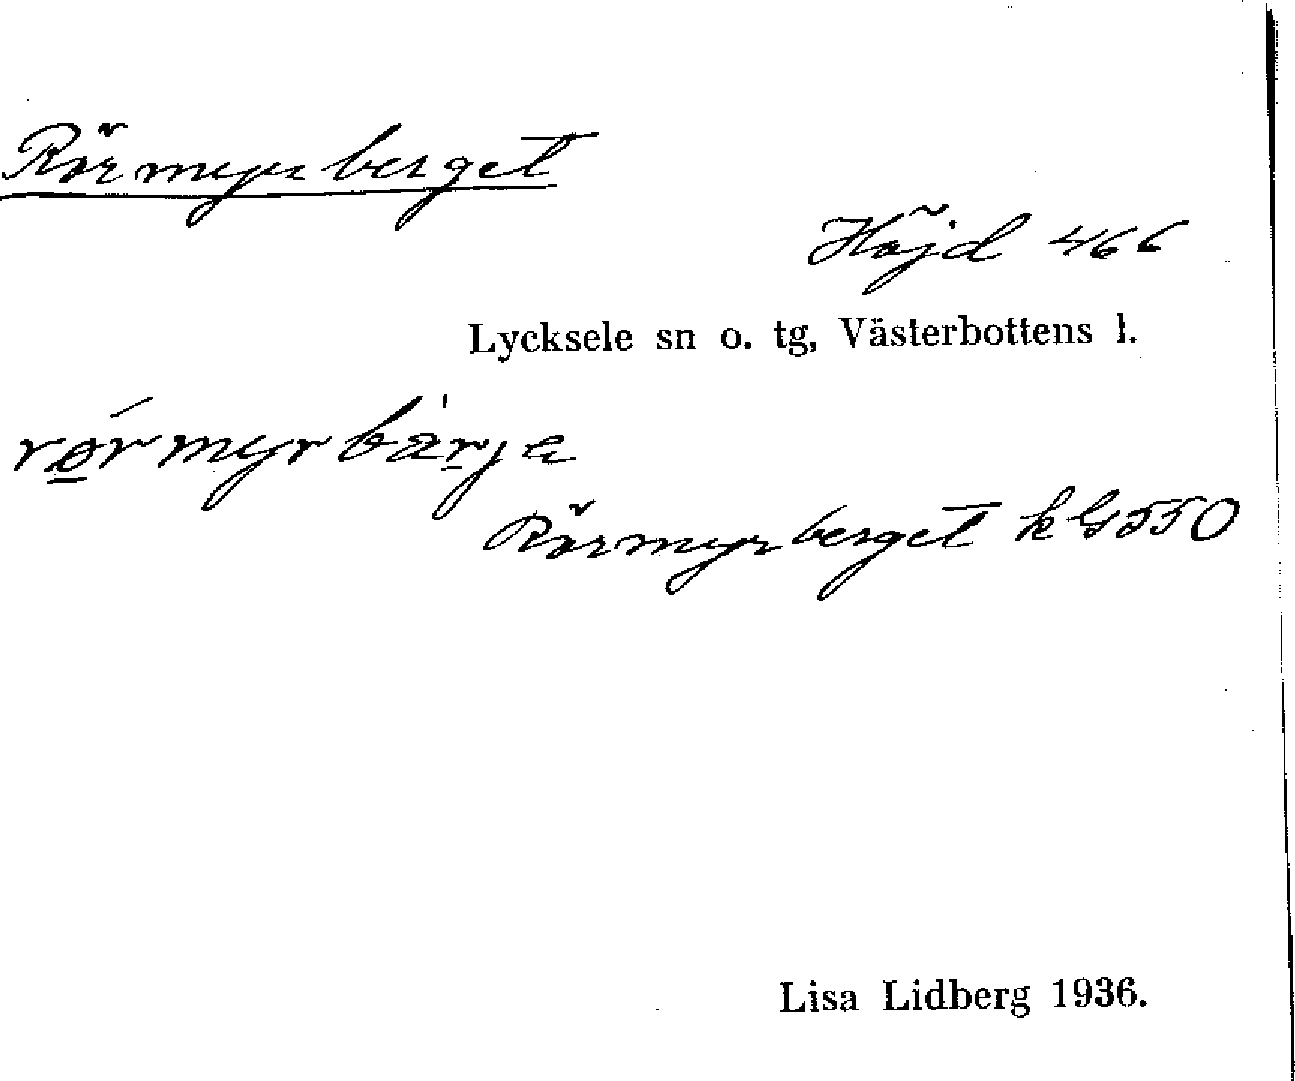 Rörmyrberget
Höjd 466
Lycksele sn o. tg, Västerbottens l.
rørmyrbärja
Rörmyrberget k G 550
Lisa Lidberg 1936.